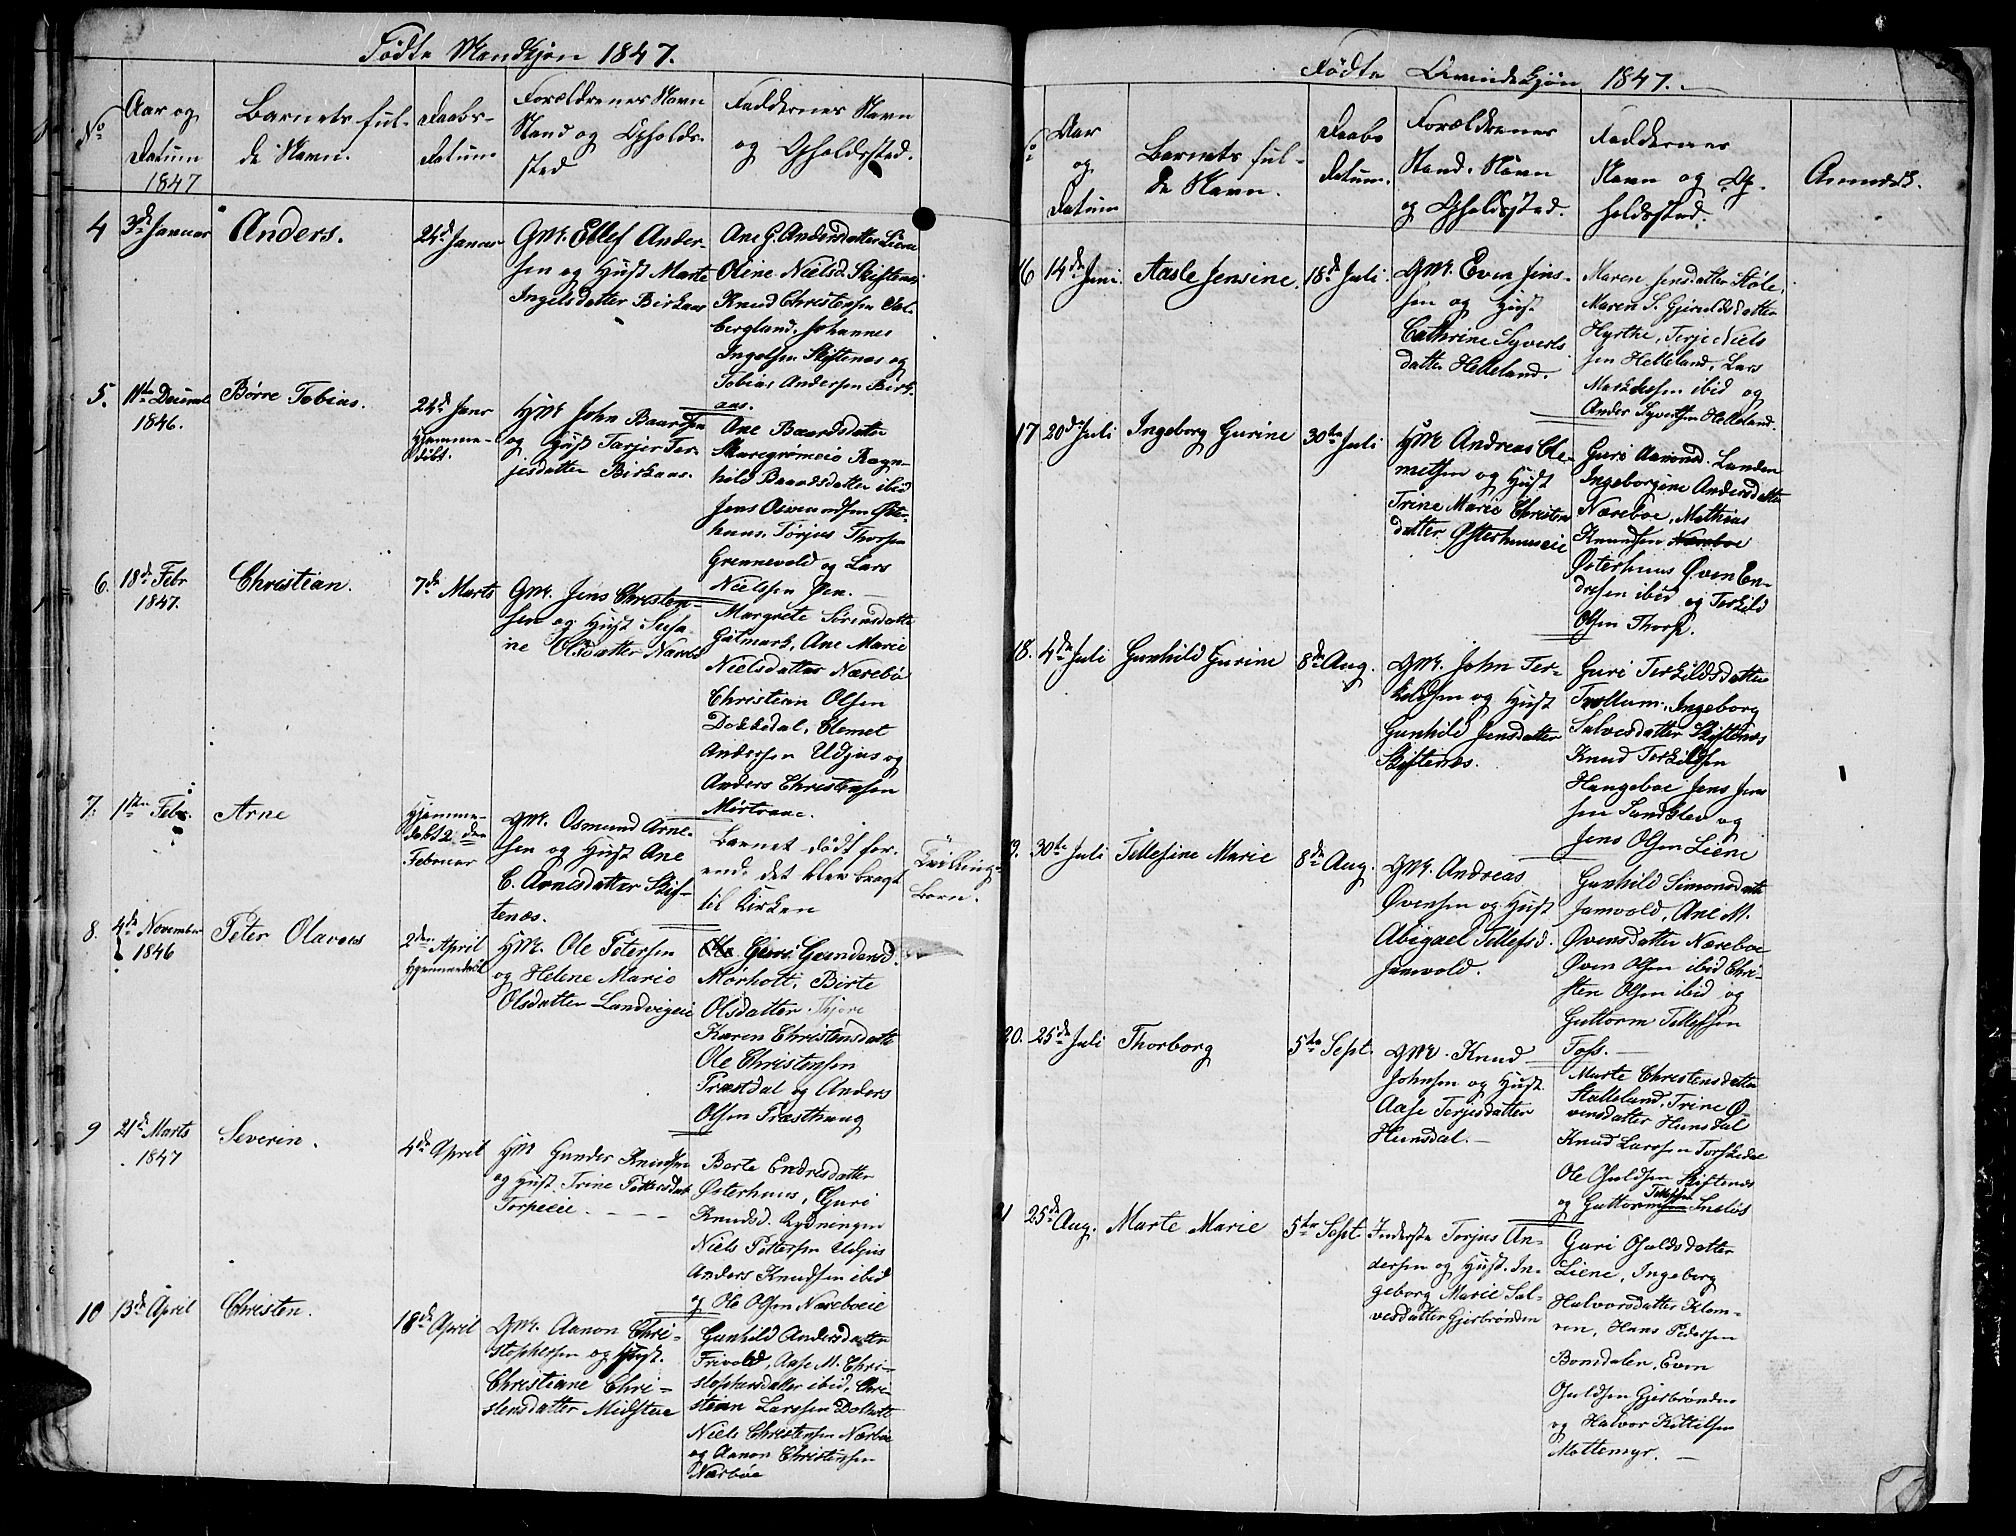 Fødte Mandkjøn 1847.
No
Aar og
Datum
1847
Barnets ful-
de Navn.
Daabs-
Datum
Forældrenes Navn
Stand og Opholds-
sted
Faddernes Navn
og Opholdssted.
4
3de Januar
Anders.
24de Januar
Gm. Ellef Ander-
sen og Hust Marte
Ingelsdatter Birkaas
Ane G. Andersdatter Liene
Oline Nielsd. Skiftenes
Knud Christensen
bergland, Johannes
Ingelsen Skiftenes og
Tobias Andersen Birk-
aas.
5.
11te Decembr
1846.
Børre Tobias.
24de Janr
Hjemme-
døbt.
Hm John Baardsen
og Hust Tarjer Ter-
jesdatter Birkaas.
Ane Baardsdatter
Skaregrømeie Ragn-
hild Baardsdatter ibid
Jens Øster-
huus, Torjus Thorsen
Grennevold og Lars
Nielsen Øen.
6.
18de Febr
1847.
Christian.
7de Marts
Gm. Jens Christen-
sen og Hust Susa-
ne Olsdatter Nærebø
Margrete Sørensdatter
Ane Marie
Nielsdatter Nærebø
Christian Olsen
Dokkedal, Clemet
Andersen Udjus og
Anders Christensen
7.
1ste Febr.
Arne
Hjemme-
døbt 2den
Februar
Gm. Osmund Arne-
sen og Hust Ane
C. Arnesdatter Skif-
tenes.
Barnet dødt for-
end det blev bragt
til Kirken
Tvilling-
Barn.
8.
4de November
1846
Peter Olaves
2den April
Hjemmedøbt
Hm. Ole Petersen
og Helene Marie
Olsdatter Landvigeie
Ole Guri Gundersd.
Mørholt, Birte
Olsdatter
Karen Christensdatter
Ole Christensen
Præstdal og Anders
Olsen Præsthaug
9
21de Marts
1847
Severin.
4de April
Hm Gunder Knudsen
og Hust. Trine Pettersdat
Torpeeie
Berte Endresdatter
Østerhuus, Guri
Knudsd. Rydningen
Niels Pettersen Udjus
Anders Knudsen ibid
og Ole Olsen Næreboeie
10
13de April
Christen.
18de April
Gm. Aanon Chri-
stophersen og Hust.
Christiane Chri-
stensdatter Midstue
Gunhild Andersdatter
Frivold, Aase M. Chri-
stophersdatter ibid, Chri-
stian Larssen Dolholt
Niels Christensen Nærbøe
og Aanon Christensen
Nærbøe
Fødte Qvindekjøn 1847.
No
Aar
og
Datum
Barnets ful-
de Navn.
Daabs
Datum.
Forældrenes
Stand, Navn
og Opholdssted.
Faddernes
Navn og Op-
holdssted.
Anmærk.
16
14de Juni.
Aasle Jensine.
18de Juli
Gm. Even Jens-
sen og Hust
Cathrine Syverts
datter Helleland.
Maren Jensdatter Støle,
Maren S. Gjeruldsdatter
Hyrthe, Terje Niels
sen Helleland, Lars
ibid og
Ander Syvertsen Helleland.
17
20de Juli
Ingeborg Gurine
30te Juli
Hm Andreas Cle-
metsen og Hust
Trine Marie Christens
datter Østerhuuseie
Guri Aamonsd. Lunden
Ingeborgine Andersdatter
Næreboe, Mathias
Knudsen Næreboe
Østerhuus Øven En-
dresen ibid og Terkild
Olsen Thorp.
18.
4de Juli
Gunhild Gurine
8de Aug.
Gm. John Ter-
kildsen og Hust
Gunhild Jensdatter
Skiftenes.
Guri Terkildsdatter
Trollum, Ingeborg
Salvesdatter Skiftenes
Knud Terkildsen
Haugeboe Jens Jens
sen Landsløv og
Jens Olsen Liene
19.
30te Juli
Tellefine Marie
8de Aug.
Gm. Andreas
Øvensen og Hust
Abigael Tellefsd.
Jamvold.
Gunhild Simonsdatt
Jamvold, Ane M.
Øvensdatter Næreboe
Øven Olsen ibid Chri-
sten Olsen ibid og
Guttorm Tellefsen
Foss.
20.
25de Juli
Thorborg
5te Sept.
Gm. Knud
Johnsen og Hust.
Aase Terjesdatter
Hunsdal.
Marte Christensdatter
Stalleland, Trine Ø-
vensdatter Hunsdal
Knud Larssen Torskedal
Ole Osuldsen Skiftenes
og Guttorm Tellefsen Inelus
21
25de Aug.
Marte Marie
5te Sept
Inderste Torjus An-
dersen og Hust. In-
geborg Marie Sal-
vesdatter Gjerbrønden
Guri Osuldsdatter
Liene, Ingeborg
Halvorsdatter Klom-
ren, Hans Pedersen
Bomdalen, Even
Osuldsen Gjerbrønden
og Halvor Kittilsen
Mollemyr.